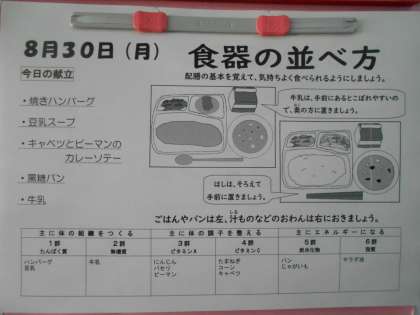 8月30日（月）
食器の並べ方
配膳の基本を覚えて、気持ちよく食べられるようにしましょう。
今日の献立
・焼きハンバーグ
・豆乳スープ
・キャベツとピーマンの
カレーソテー
・黒糖パン
・牛乳
牛乳は、手前にあるとこぼれやすいの
で、奥の方に置きましょう。
はしは、そろえて
手前に置きましょう。
ごはんやパンは左、汁ものなどのおわんは右におきましょう。
主に体の組織をつくる
主に体の調子を整える
主にエネルギーになる
1群
たんぱく質
2群
無機質
3群
ビタミンA
4群
ビタミンC
5群
炭水化物
6群
脂質
ハンバーグ
豆乳
牛乳
にんじん
パセリ
ピーマン
たまねぎ
コーン
キャベツ
パン
じゃがいも
サラダ油